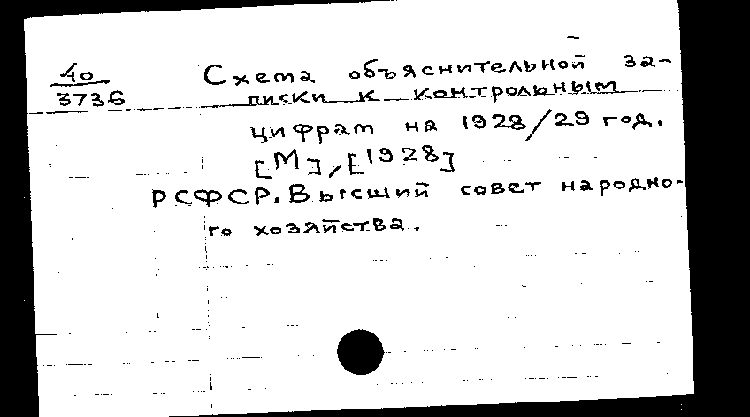 40
3736
Схема объяснительной за-
писки к контрольным
цифрам на 1928/29 год.
[М], [1928]
РСФСР. Высший совет народно-
го хозяйства.